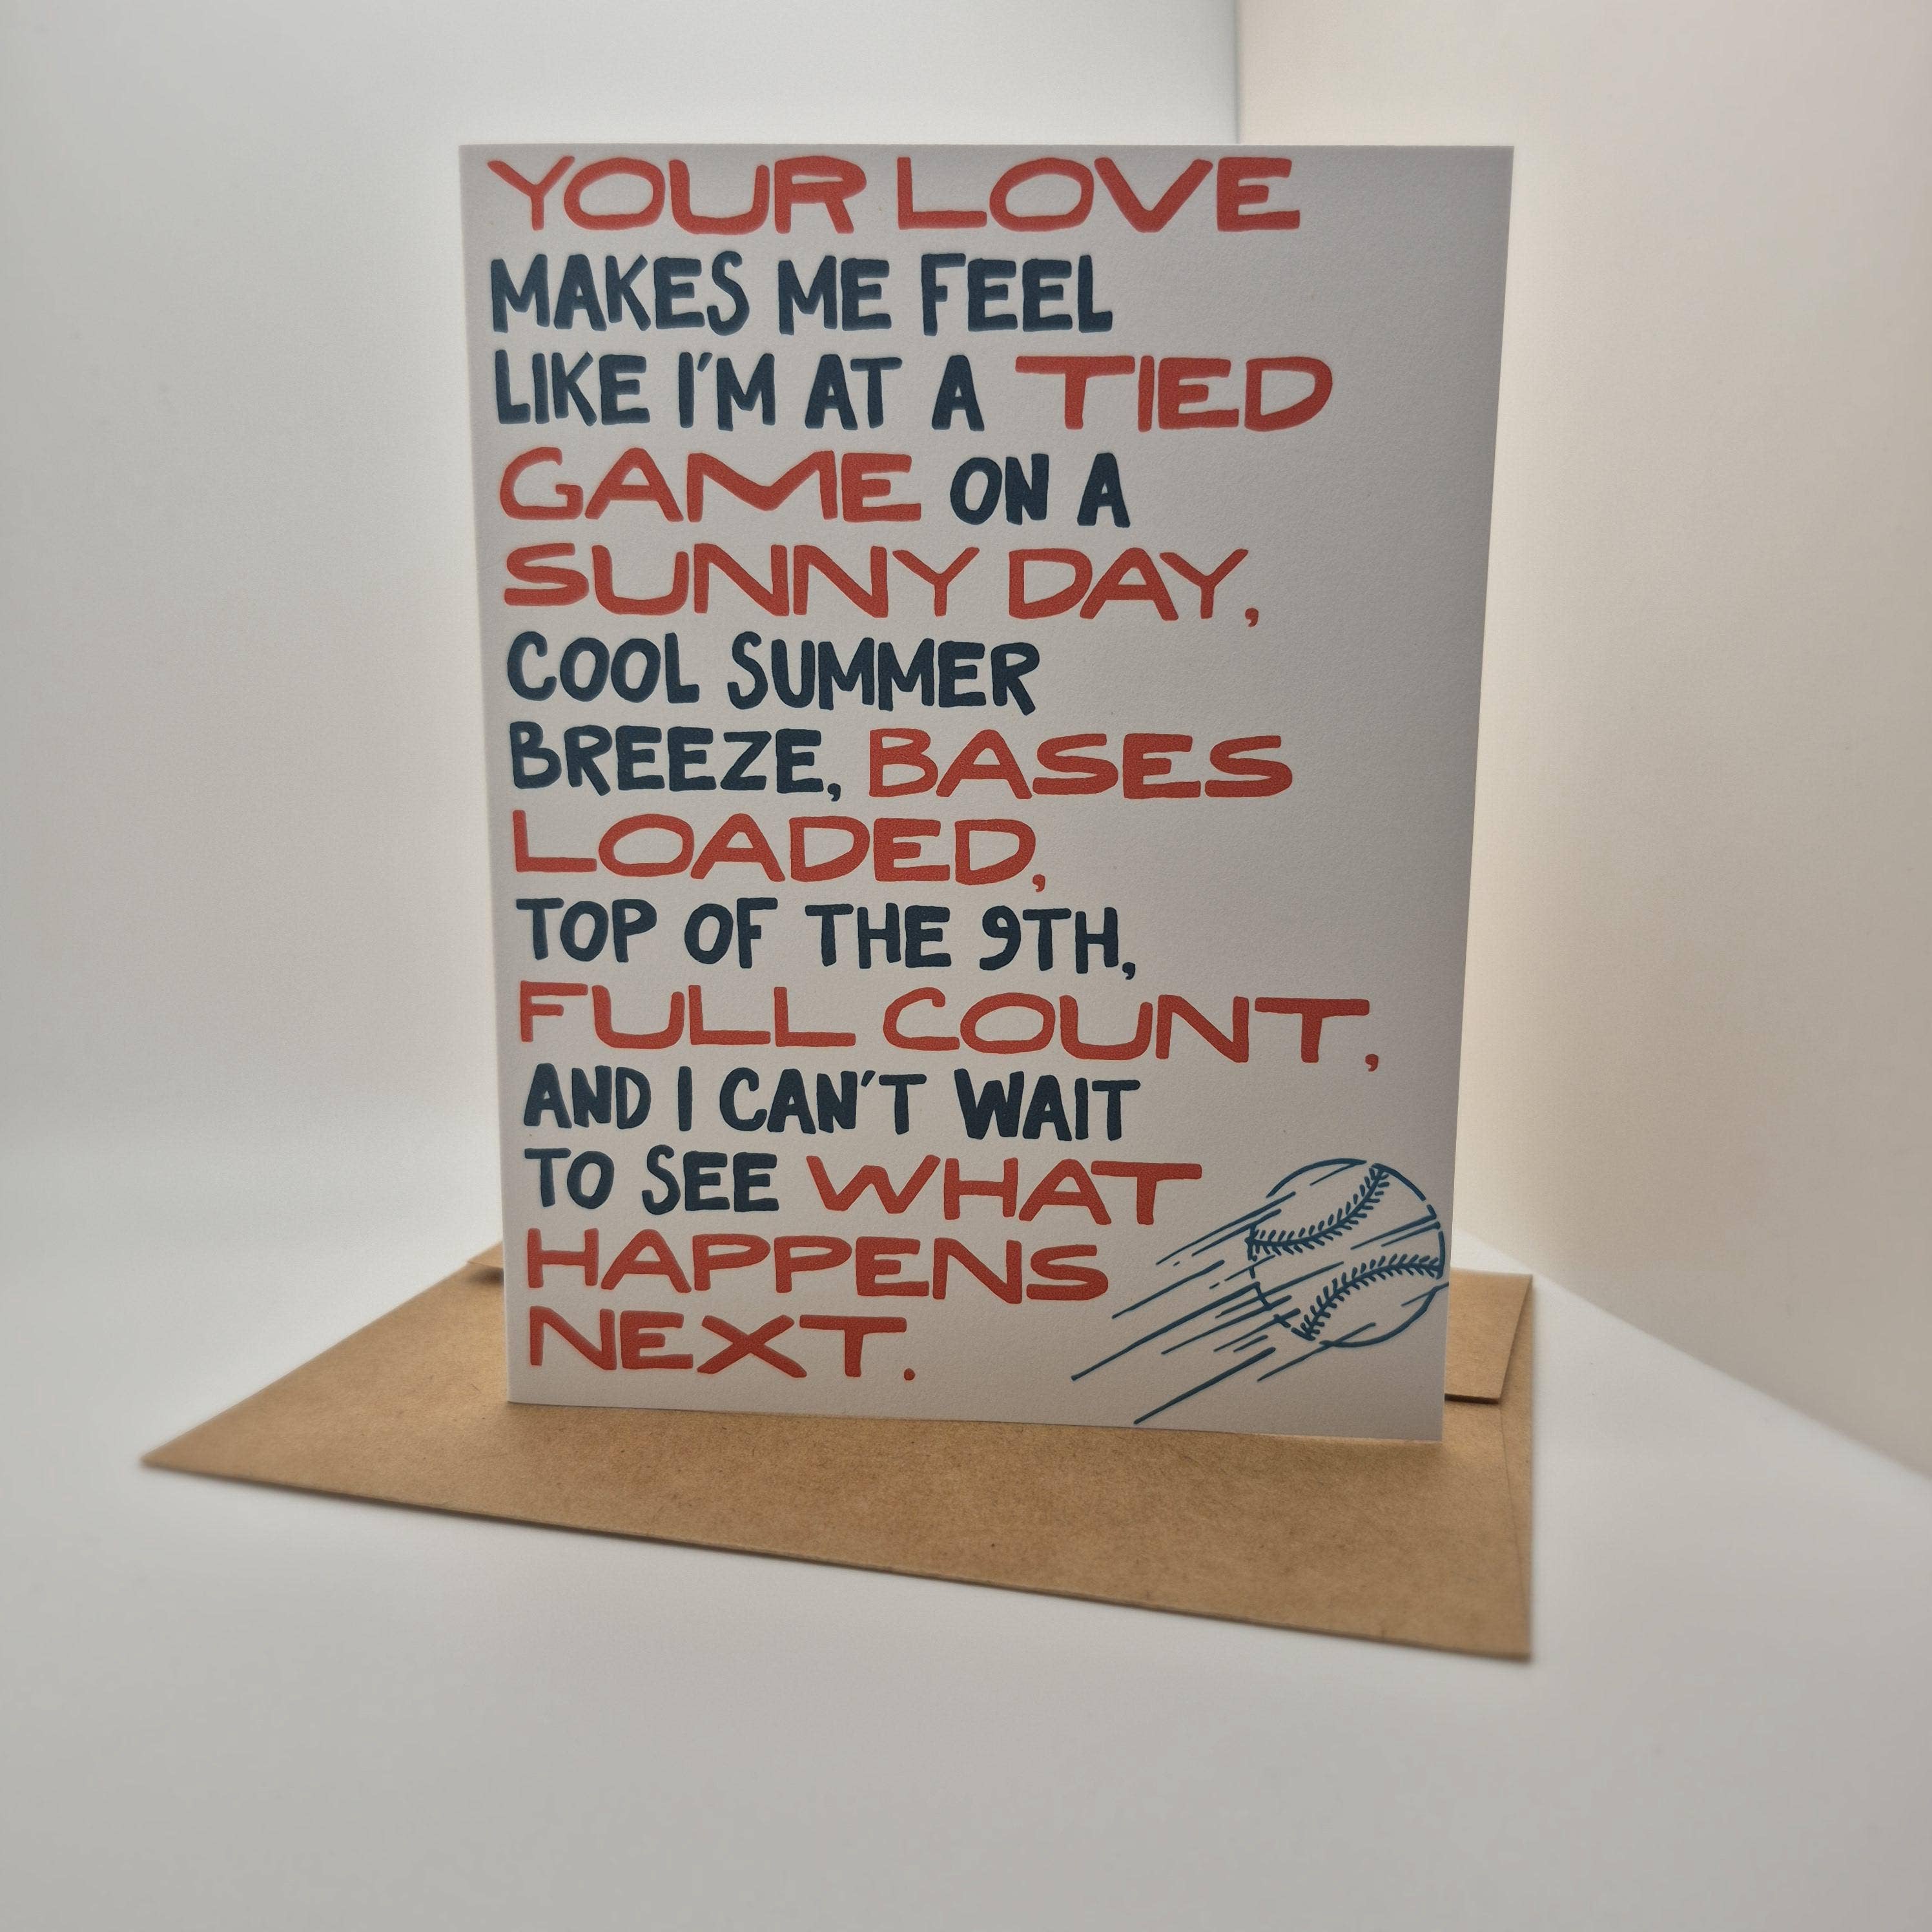 YOUR LOVE
MAKES ME FEEL
LIKE I'M AT A TIED
GAME ON A
SUNNY DAY,
COOL SUMMER
BREEZE, BASES
LOADED,
TOP OF THE 9TH,
FULL COUNT,
AND I CAN'T WAIT
TO SEE WHAT
HAPPENS
NEXT.